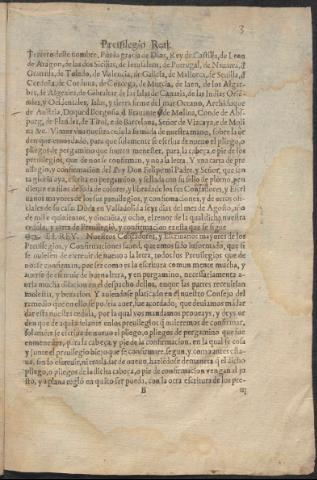 3
Preuilegio Real.
Tercero deste nombre, Por la gracia de Dios, Rey de Castilla, de Leon
de Aragon, de las dos Sicilias, de Ierusalem, de Portugal, de Nauarra, d
Granada, de Toledo, de Valencia, de Galicia, de Mallorca, de Seuilla, d
Cerdeña, de Cordoua, de Corcega, de Murcia, de Iaen, de los Algar-
bes, de Algezira, de Gibraltar de las Islas de Canaria, de las Indias Orie-
tales, y Ocidentales, Islas, y tierra firme del mar Oceano, Archiduque
de Austria, Duque d Borgoña, d Brauante y de Molina, Conde de Abs-
purg, de Flandes, de Tirol, e de Barcelona, Señor de Vizcaya, e de Moli-
na &c. Vimos vna nuestra cedula firmada de nuestra mano, sobre la or
den que emos dado, para que solamente se escriua de nueuo el pliego, o
pliegos de pergamino que fueren menester, para la cabeça, o pie de los
preuilegios, que de nos se confirman, y no a la letra. Y vna carta de pre
uilegio, y confirmacion del Rey Don Felipe mi Padre, y Señor, que san
ta gloria aya, escrita en pergamino, y sellada con su sello de plomo, pen
diente en filos de seda de colores, y librada de los sus Concertadores, y Escri
uanos mayores de los sus preuilegios, y confirmaciones, y de otros offi
ciales de su casa. Dada en Valladolid a seys dias del mes de Agosto, año
de mil e quinientos, y cincuenta, y ocho, el tenor de la qual dicha nuestra
cedula, y carta de Preuilegio, y confirmacion es esta que se sigue.
EL REY. Nuestros Concertadores, y Escriuanos mayores de los
Preuilegios, y Confirmaciones sabed, que emos sido informado, que si
se ouiessen de escreuir de nueuo a la letra, todos los Preuilegios que de
nos se confirman, por ser como es la escritura comun menor mucha, y
auerse de escreuir de buena letra, y en pergamino, necessariamente a-
uria mucha dilacion en el despacho dellos, en que las partes receuirian
molestia, y vexacion. Y auiendose platicado en el nuestro Consejo del
remedio que en ello se podia auer, fue acordado, que deuiamos mandar
dar esta nuestra cedula, por la qual vos mandamos proueays, y deys or
den que de aqui adelante en los preuilegios q̃ vuieremos de confirmar,
solamente se escriua de nueuo el pliego, o pliegos de pergamino que fue
en menester, para la cabeça, y pie de la confirmacion, en la qual se cosa
y junte el preuilegio viejo que se confirmare, segun, y como antes esta-
ua, sin lo escreuir, ni trasladar de nueuo, haziendose de manera q̃ el dicho
pliego, o pliegos de la dicha cabeça, o pie de confirmacion vengan al ju
sto, y a plana reglõ en quãto ser pueda, con la otra escritura de los pre-
B
uj